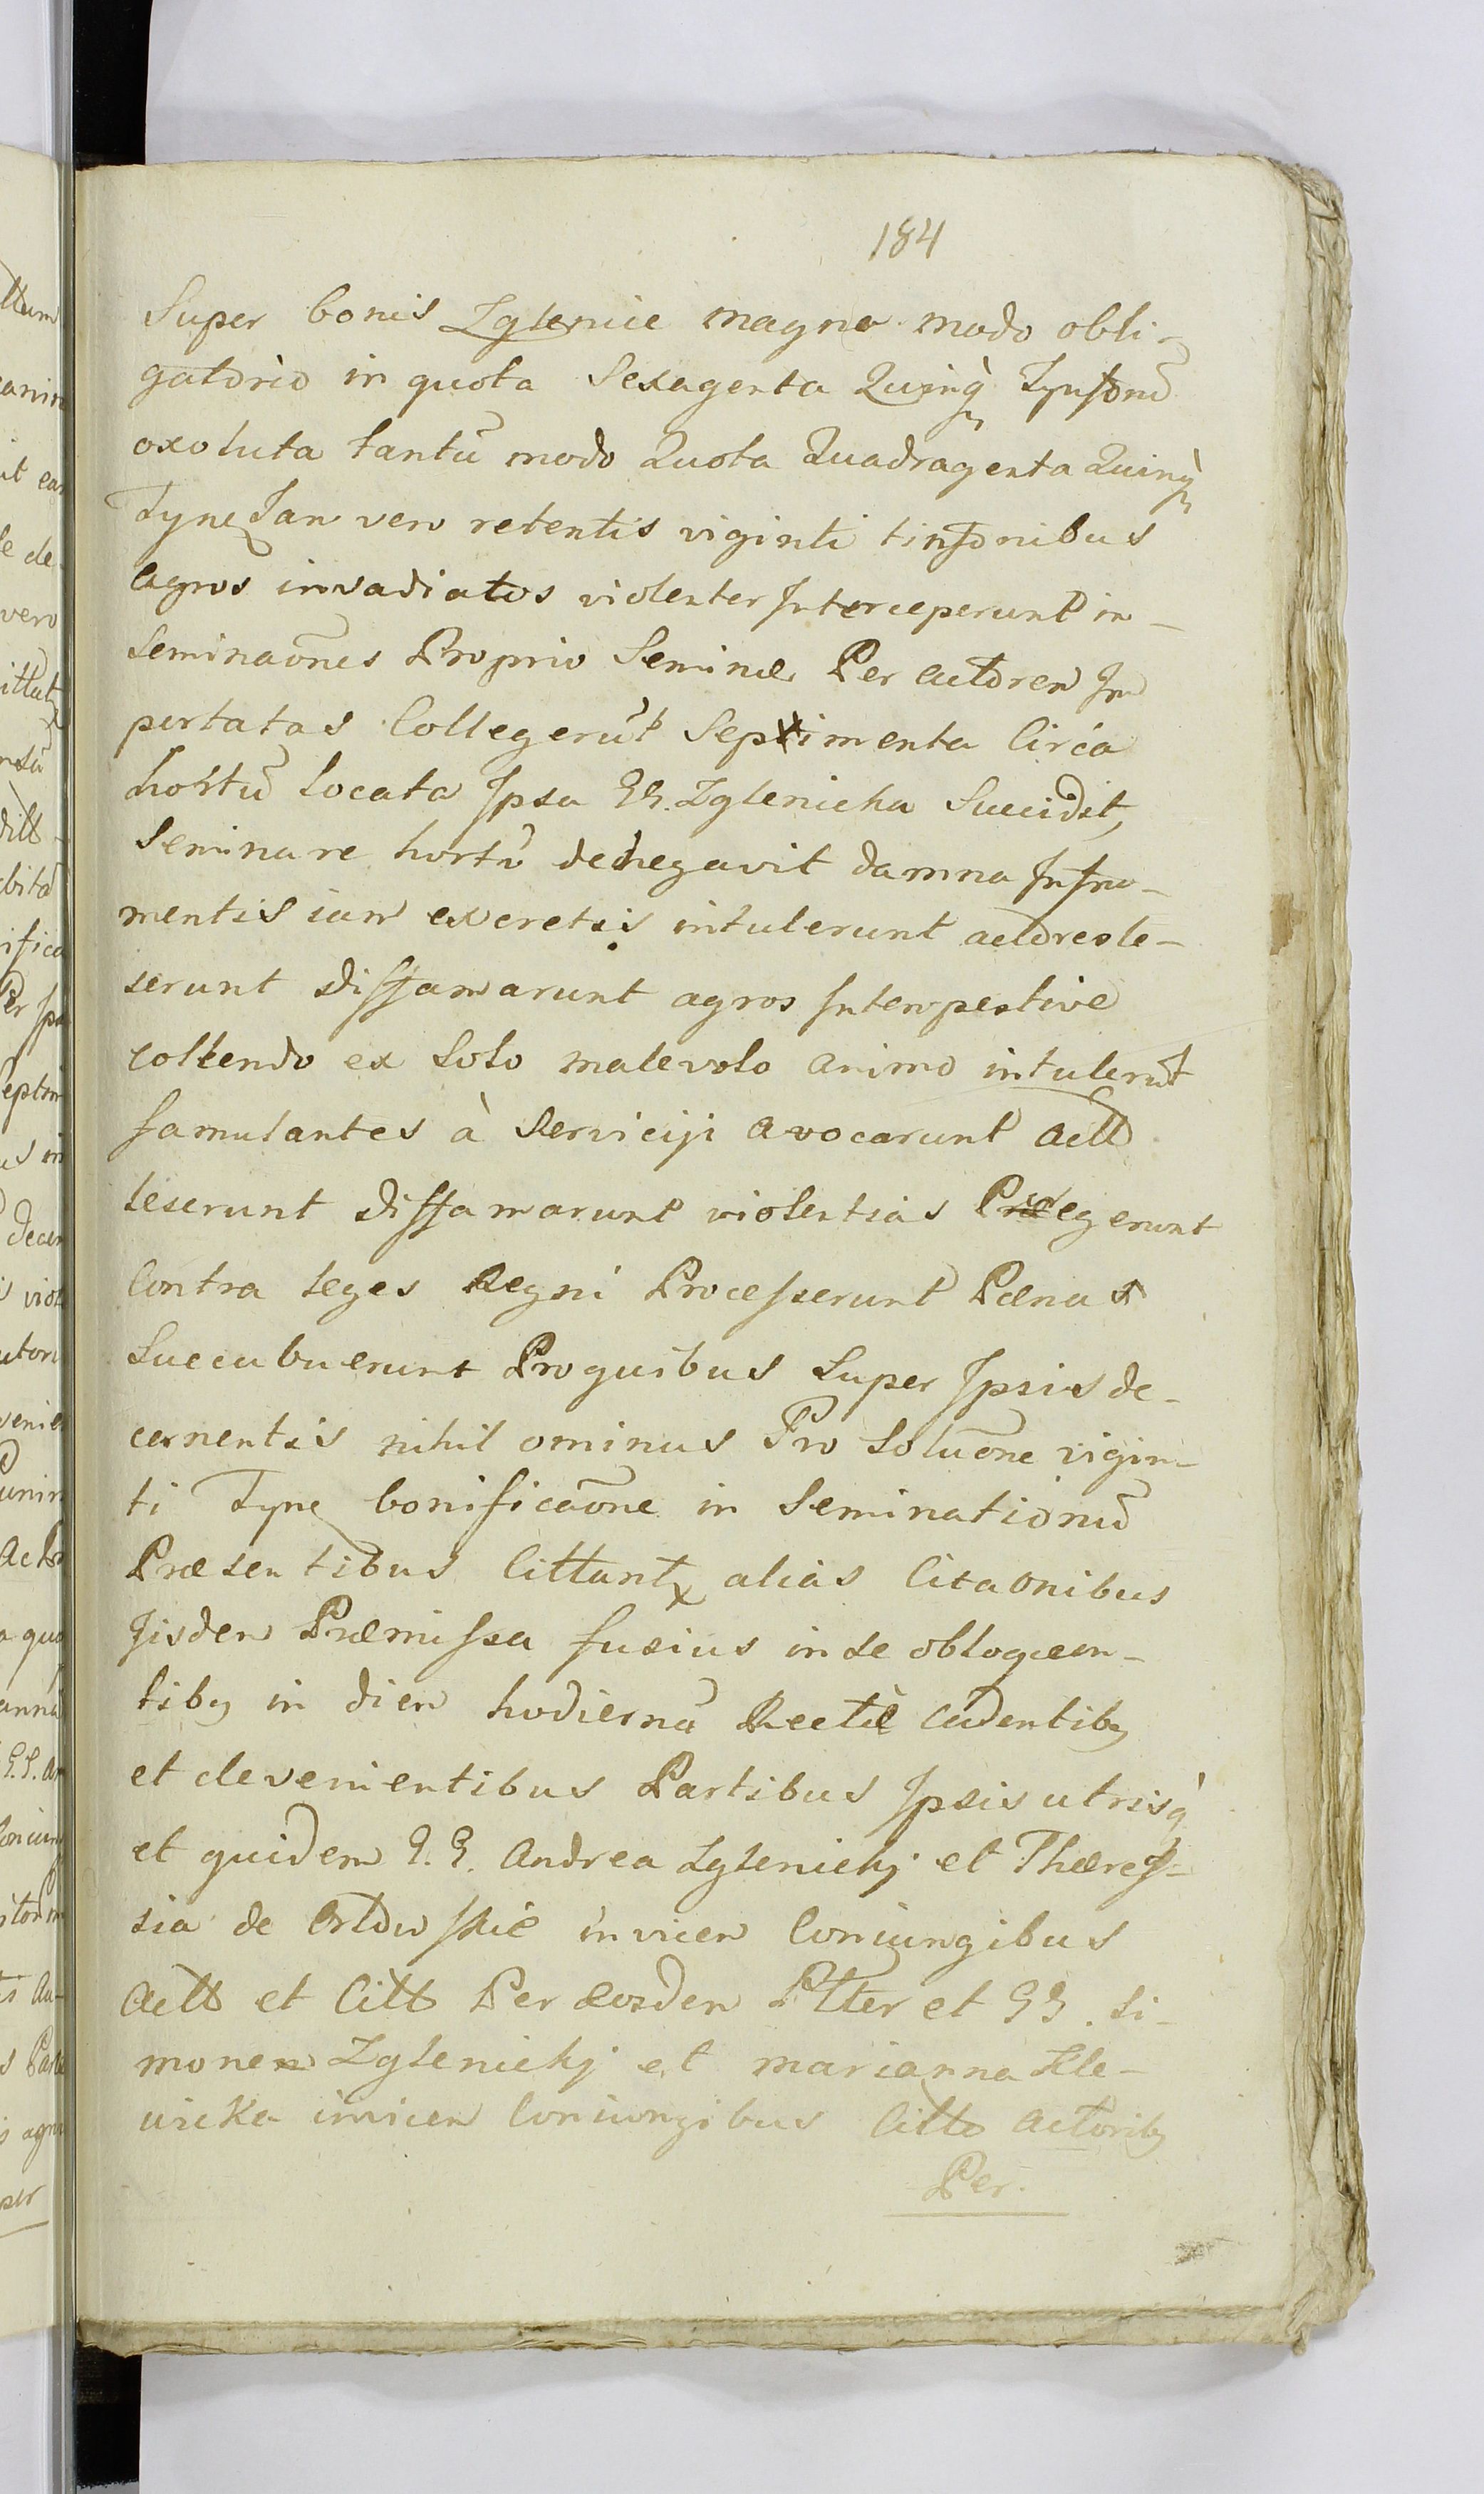 184
Super bonis Zglenice magno modo obli-
gatorio in quota Sexagenta Quinq̀ Tynfonū
exoluta tantū modo Quota Quadragenta Quinq̀
Tyne Jan vero retentis viginti tinfonibus
agros invadiatos violenter Interceperunt in-
Seminaōnes Proprio Semine Per actorem Im
portatas Collegerūt Sepimenta Circa
hortū locata Ipsa GG. Zglenicka Succidit,
Seminare hortū denegavit damna Infru-
mentis iam excretis intulerunt actoresle-
serunt diffamarunt agros Intempestive
collendo ex Solo malevolo animo intulerūt
famulantes à Servicijs avocarunt Actt
leserunt diffamarunt violentias Pegerunt
Contra leges Regni Processerunt Pænas
Succubuerunt Proquibus Super Ipsis de-
cernentis nihil ominus Pro Soluōne vigin-
ti Tyne bonificaōne in Seminationū
Præsentibus Cittant alias Citaonibus
Iisdem Præmissa fusius inse obloquen-
tibꝫ in diem hodiernā Recte cadentibꝫ
et devenientibus Partibus Ipsis utrisq̀
et quidem G.G. Andrea Zglenickj et Theres-
sia de Ostowskie invicem Coniungibus
Actt et Citt Per eosdem Ptter et GG. Si-
monem Zglenickj et marianna Kle-
wicka invicem Coniungibus Citto actoribꝫ
Per.